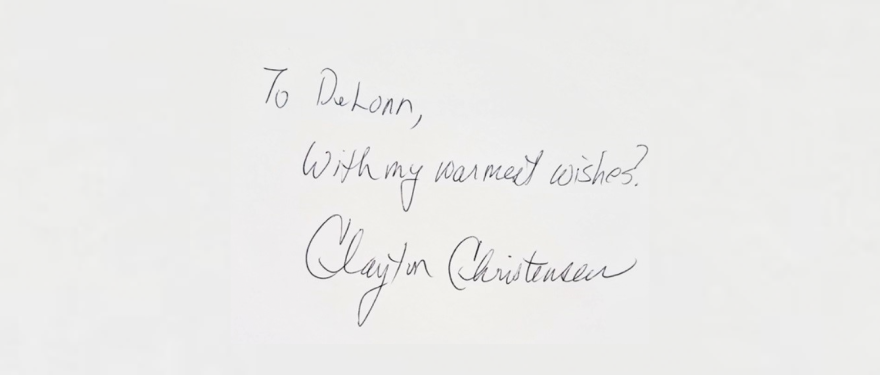 To DeLonn,
With my warmest wishes!
Clayton Christensen